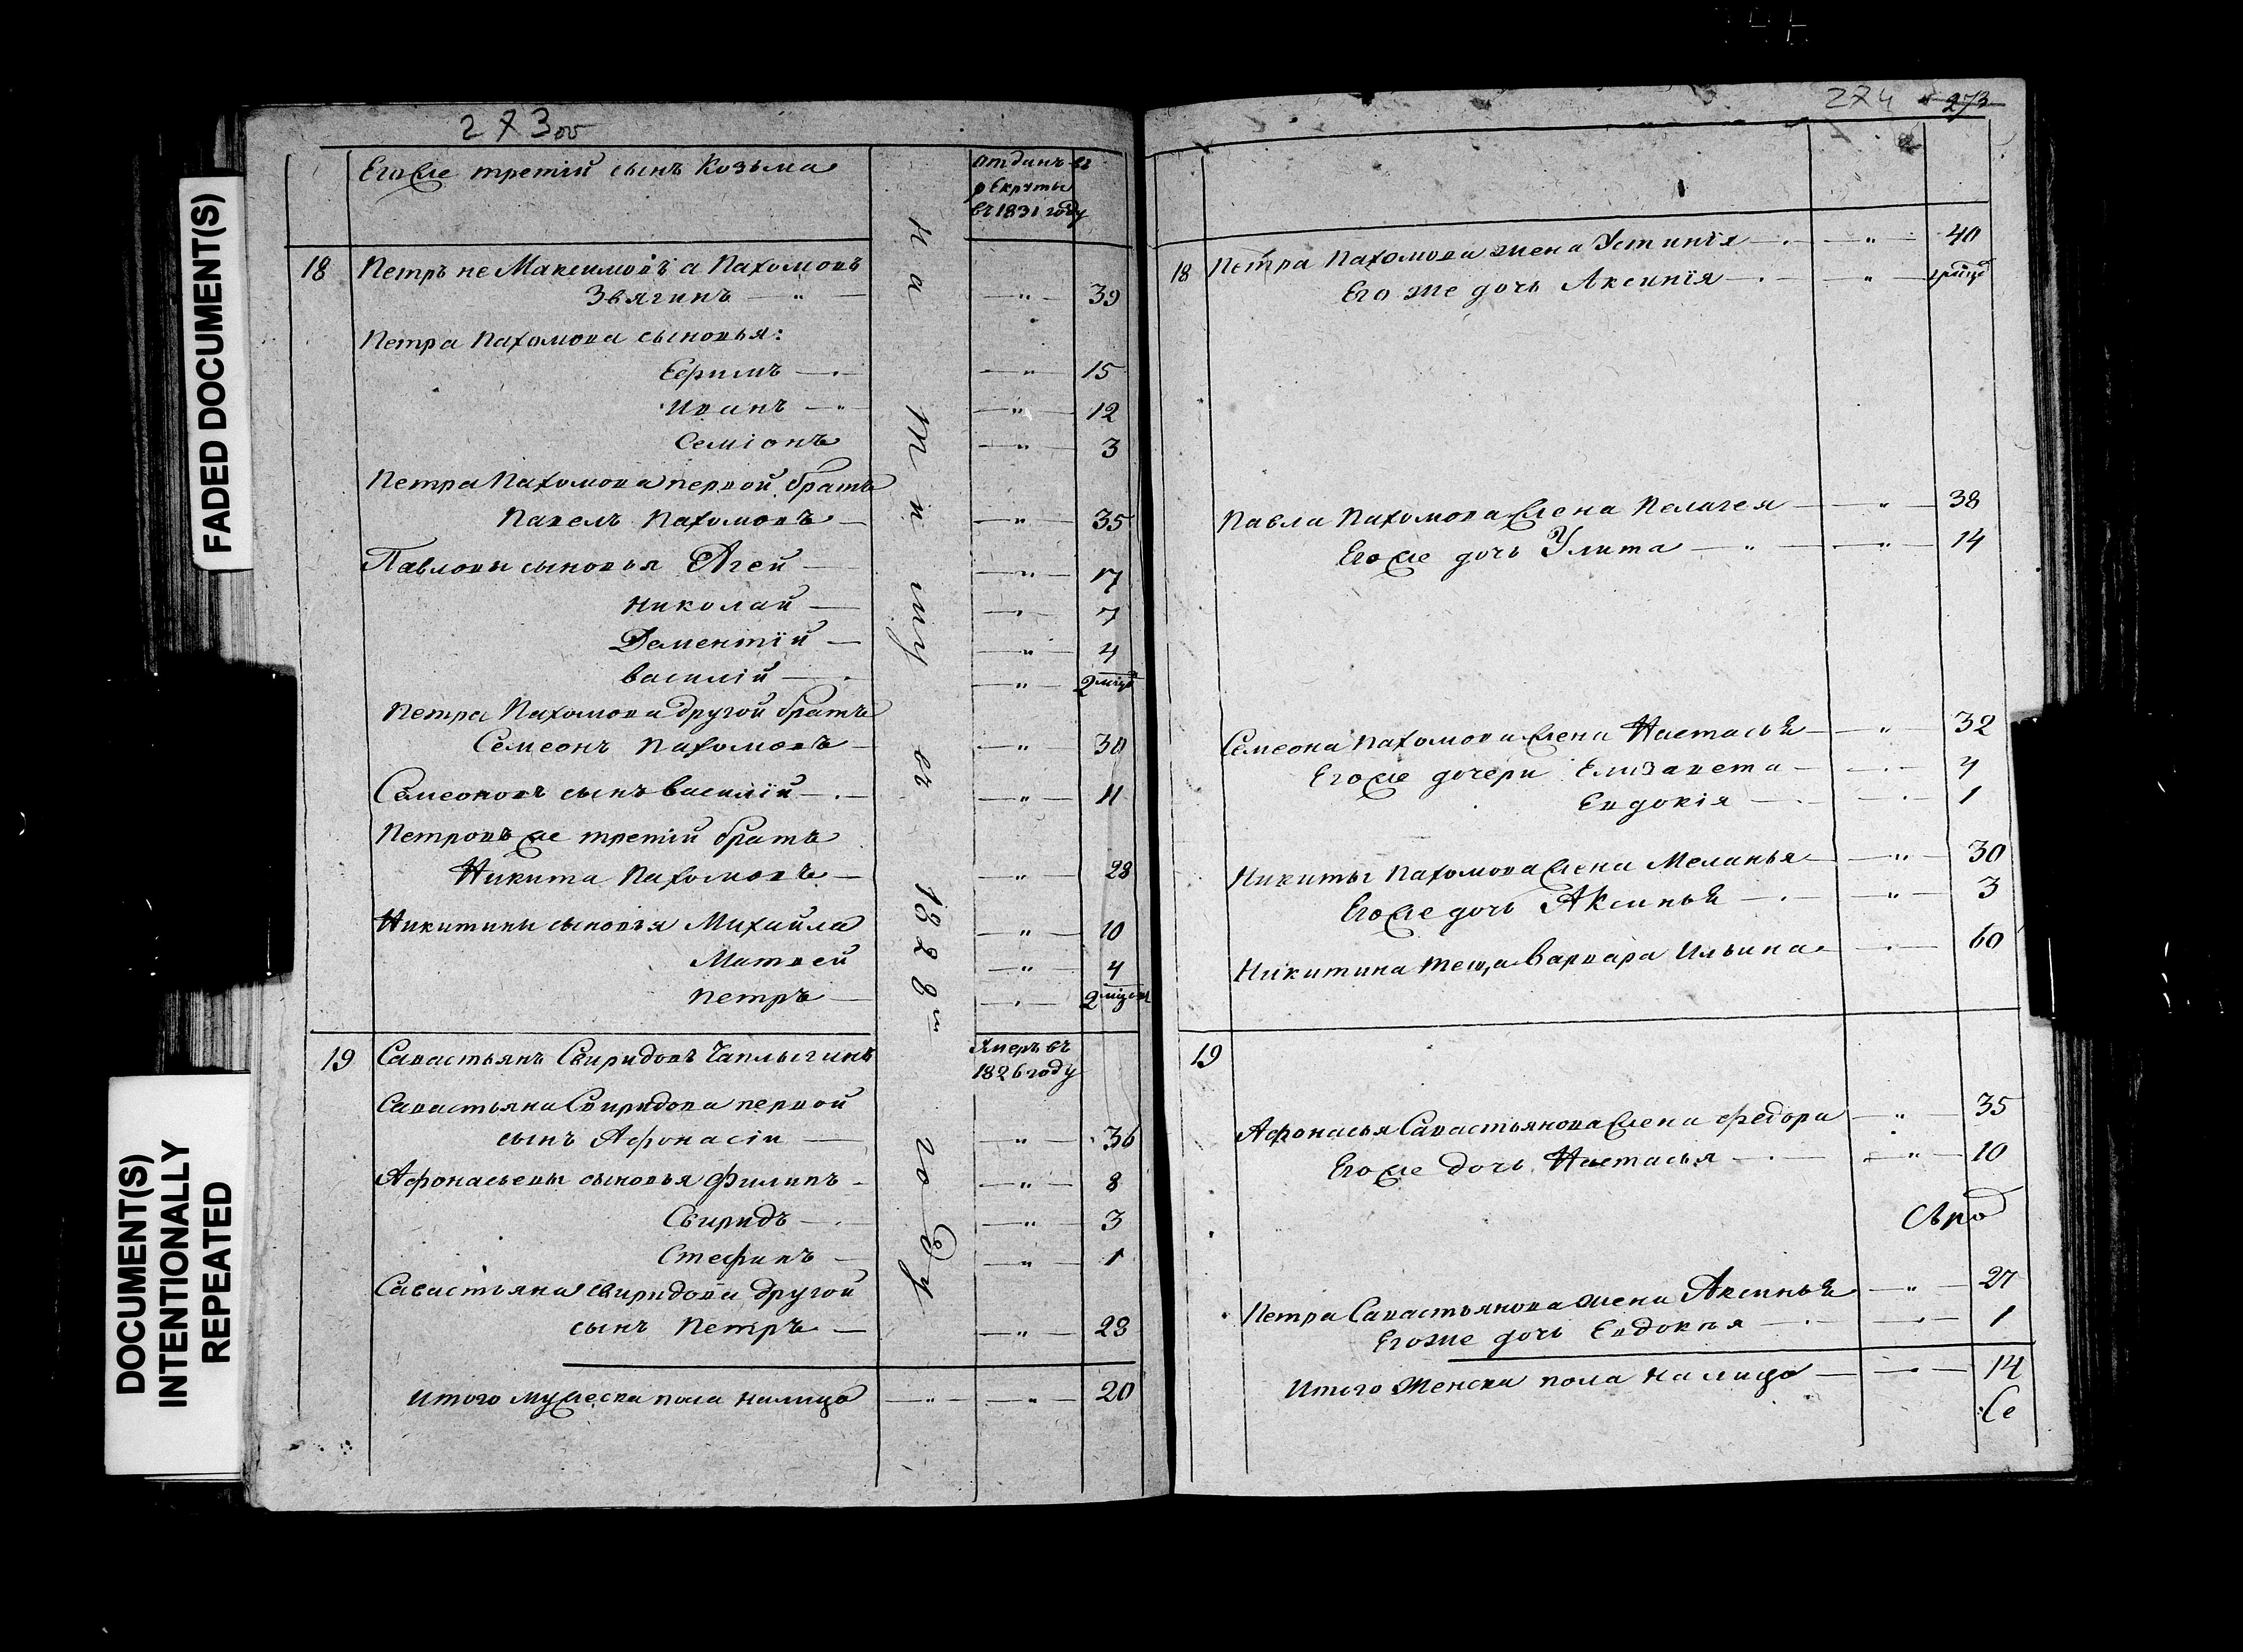 FADED DOCUMENT(S)
DOCUMENT(S)
INTENTIONALLY
REPEATED
273 об
Его же третій сынъ Козьма
отданъ въ
рекруты
въ 1831 году
на пищу въ 1828 м году
18 Петръ не Максимовъ а Пахомовъ
Звягинъ — " — 39
Петра Пахомова сыновья:
Ефимъ — " — 15
Иванъ — " — 12
Семіонъ — " — 3
Петра Пахомова первой братъ
Павелъ Пахомовъ — " — 35
Павловы сыновья Агей — " — 17
Николай — " — 7
Дементїй — " — 4
Василій — " — 2 мѣся
Петра Пахомова другой братъ
Семеонъ Пахомовъ — " — 30
Семеоновъ сынъ Василїй — " — 11
Петровъ же третій братъ
Никита Пахомовъ — " — 28
Никитины сыновья Михайла — " — 10
Матвей — " — 4
Петръ — " — 2 мѣся
19 Савастьянъ Свиридовъ Чаплыгинъ
умеръ въ
1826 году
Савастьяна Свиридова первой
сынъ Афонасіи — " — 36
Афонасьевы сыновья Филипъ — " — 8
Свиридъ — " — 3
Стефанъ — " — 1
Савастьяна Свиридова другой
сынъ Петръ — " — 28
Итого мужеска пола налицо — " — " — 20
274 273
18 Петра Пахомова жена Устинїя — " — 40
Его же дочь Аксинїя — " —
Павла Пахомова жена Пелагея — " — 38
Его же дочь Улита — " — " — 14
Семеона Пахомова жена Настасья — " — 32
Его же дочери Елизавета — 4
Евдокія — 1
Никиты Пахомова жена Меланья — " — 30
Его же дочь Аксинья — " — 3
Никитина теща Варвара Ильина — 60
19
Афонасья Савастьянова жена Федора — " — 35
Его же дочь Настасья — " — 10
Петра Савастьянова жена Аксинья — " — 27
Его же дочь Евдокия — 1
Итого женска пола налицо — 14
Се